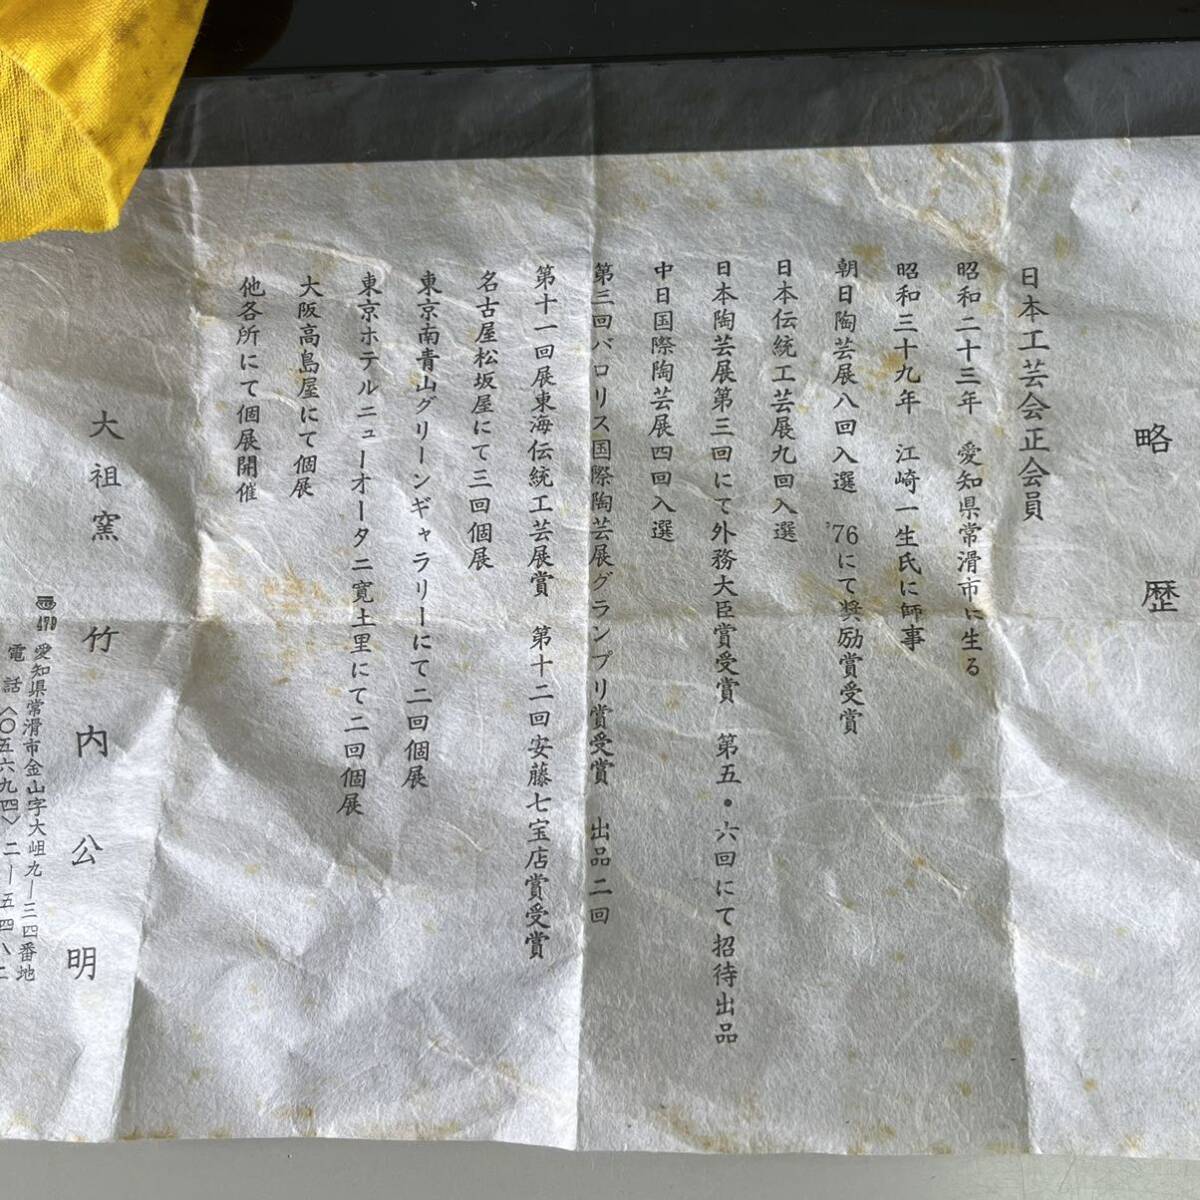 略歴
日本工芸会正会員
昭和二十三年　愛知県常滑市に生る
昭和三十九年　江崎一生氏に師事
朝日陶芸展八回入選　'76にて奨励賞受賞
日本伝統工芸展九回入選
日本陶芸展第三回にて外務大臣賞受賞　第五・六回にて招待出品
中日国際陶芸展四回入選
第三回バロリス国際陶芸展グランプリ賞受賞　出品二回
第十一回展東海伝統工芸展賞　第十二回安藤七宝店賞受賞
名古屋松坂屋にて三回個展
東京南青山グリーンギャラリーにて二回個展
東京ホテルニューオータニ寛土里にて二回個展
大阪高島屋にて個展
他各所にて個展開催
大祖窯　竹内公明
〠479 愛知県常滑市金山字大岨九ー三四番地
電話〈〇五六九四〉二ー五四八二